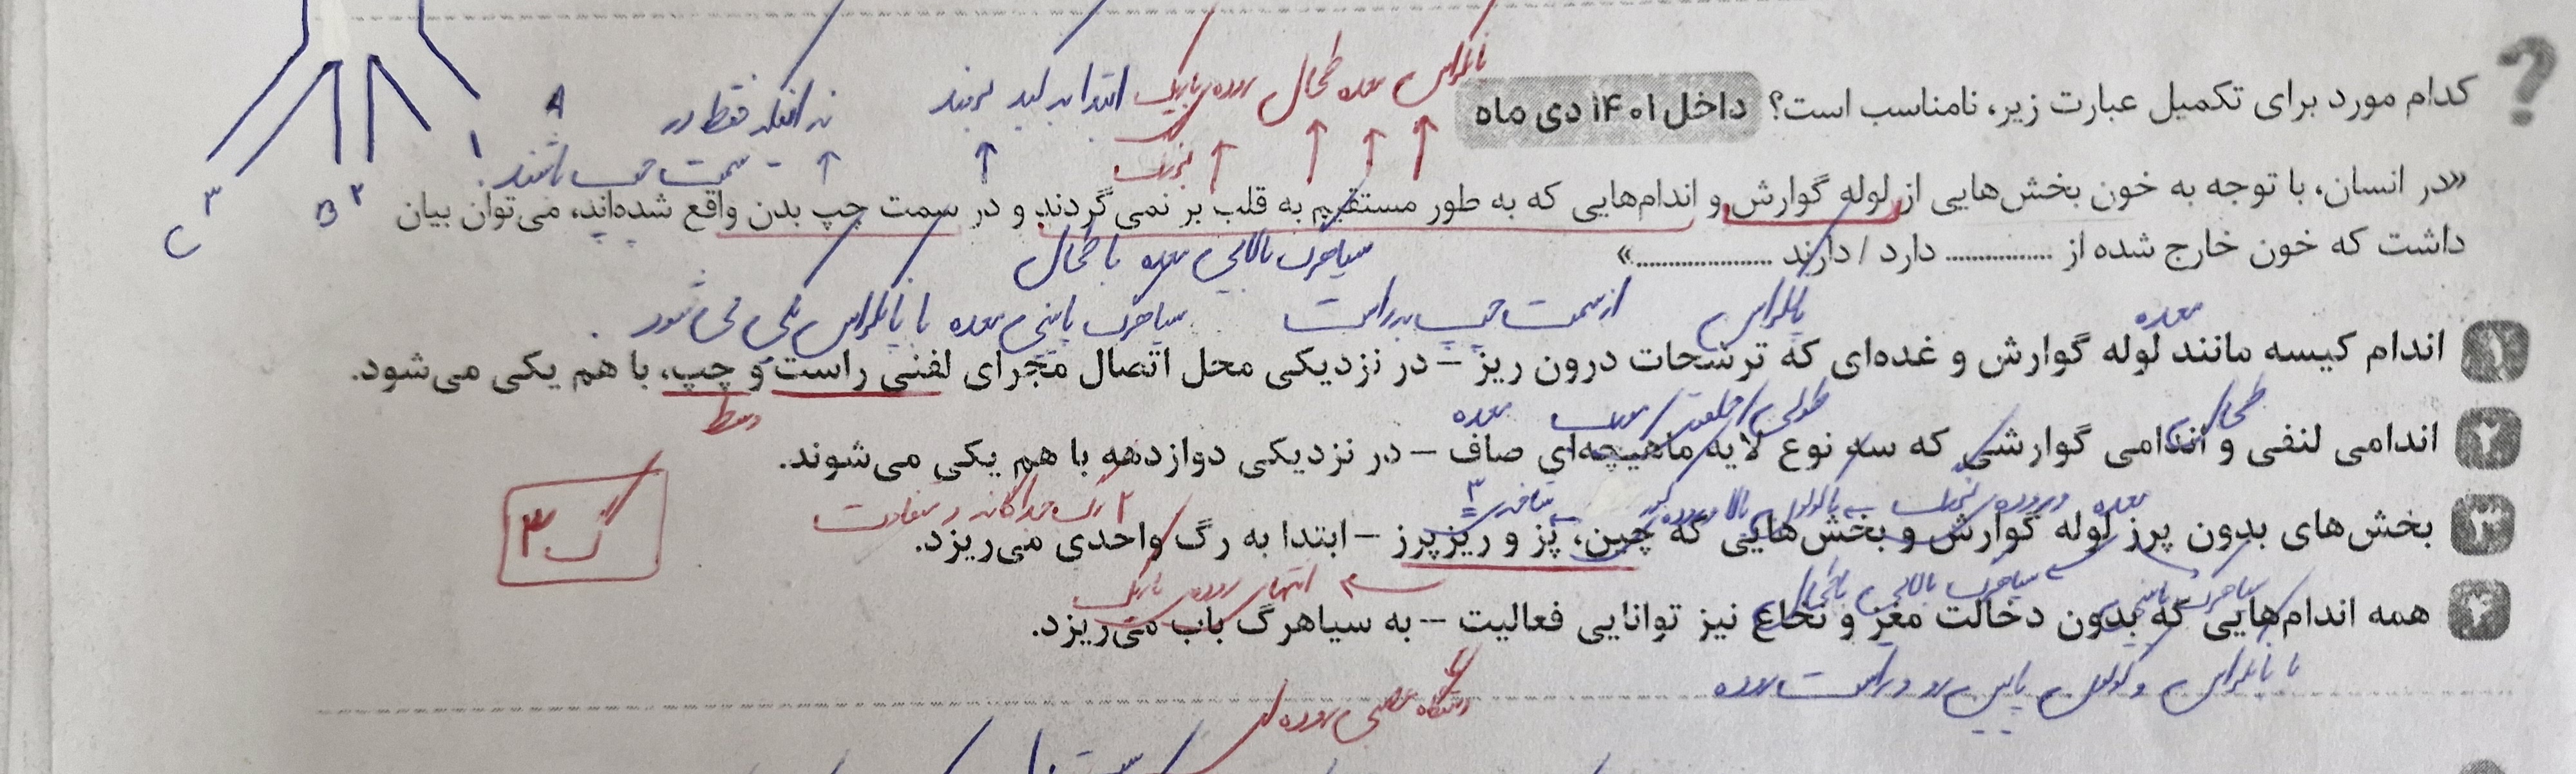 پانکراس معده طحال روده باریک ابتدا به کبد بریزند
کدام مورد برای تکمیل عبارت زیر، نامناسب است؟ داخل ۱۴۰۱ دی ماه
نه اینکه فقط در A
بزرگ سمت چپ باشند. ۱
«در انسان، با توجه به خون بخش‌هایی از لوله گوارش و اندام‌هایی که به طور مستقیم به قلب بر نمی‌گردند و در سمت چپ بدن واقع شده‌اند، می‌توان بیان B ۲ C ۳
داشت که خون خارج شده از ................ دارد / دارند ....................»
سیاهرگ بالایی معده با طحال
معده پانکراس از سمت چپ به راست سیاهرگ پایینی معده با پانکراس یکی می‌شود.
۱ اندام کیسه مانند لوله گوارش و غده‌ای که ترشحات درون ریز – در نزدیکی محل اتصال مجرای لفنی راست و چپ، با هم یکی می‌شود.
طحال طولی / حلقوی / مورب معده وسط
۲ اندامی لنفی و اندامی گوارشی که سه نوع لایه ماهیچه‌ای صاف – در نزدیکی دوازدهه با هم یکی می‌شوند.
معده و روده بزرگ ۲ رگ جداگانه و متفاوت
۳ بخش‌های بدون پرز لوله گوارش و بخش‌هایی که چین، پز و ریزپرز – ابتدا به رگ واحدی می‌ریزد.
گ ۳
سیاهرگ پایینی سیاهرگ بالایی با طحال روده باریک
۴ همه اندام‌هایی که بدون دخالت مغز و نخاع نیز توانایی فعالیت – به سیاهرگ باب می‌ریزد.
با پانکراس و کولون پایین رو و راست روده
دستگاه عصبی روده‌ای